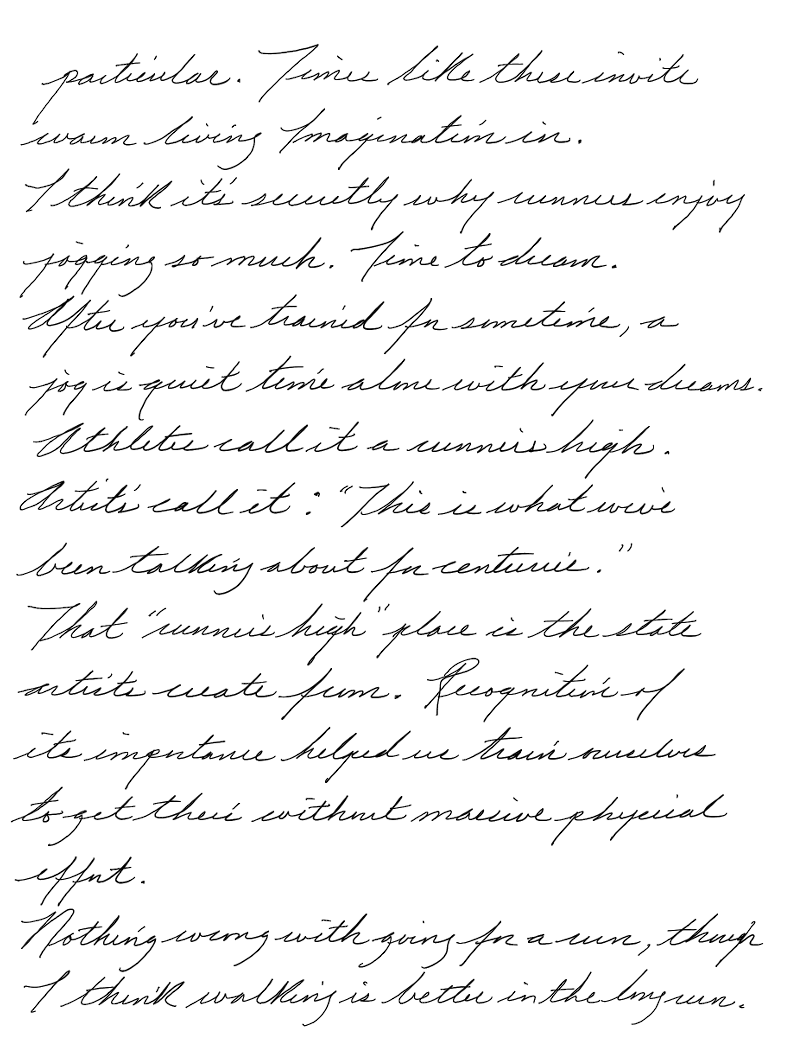 particular. Times like these invite
warm living Imagination in.
I think it's secretly why runners enjoy
jogging so much. Time to dream.
After you've trained for sometime, a
jog is quiet time alone with your dreams.
Athletes call it a runners high.
Artists call it : "This is what we've
been talking about for centuries."
That "runners high" place is the state
artists create from. Recognition of
its importance helped us train ourselves
to get there without massive physical
effort.
Nothing wrong with going for a run, though
I think walking is better in the long run.